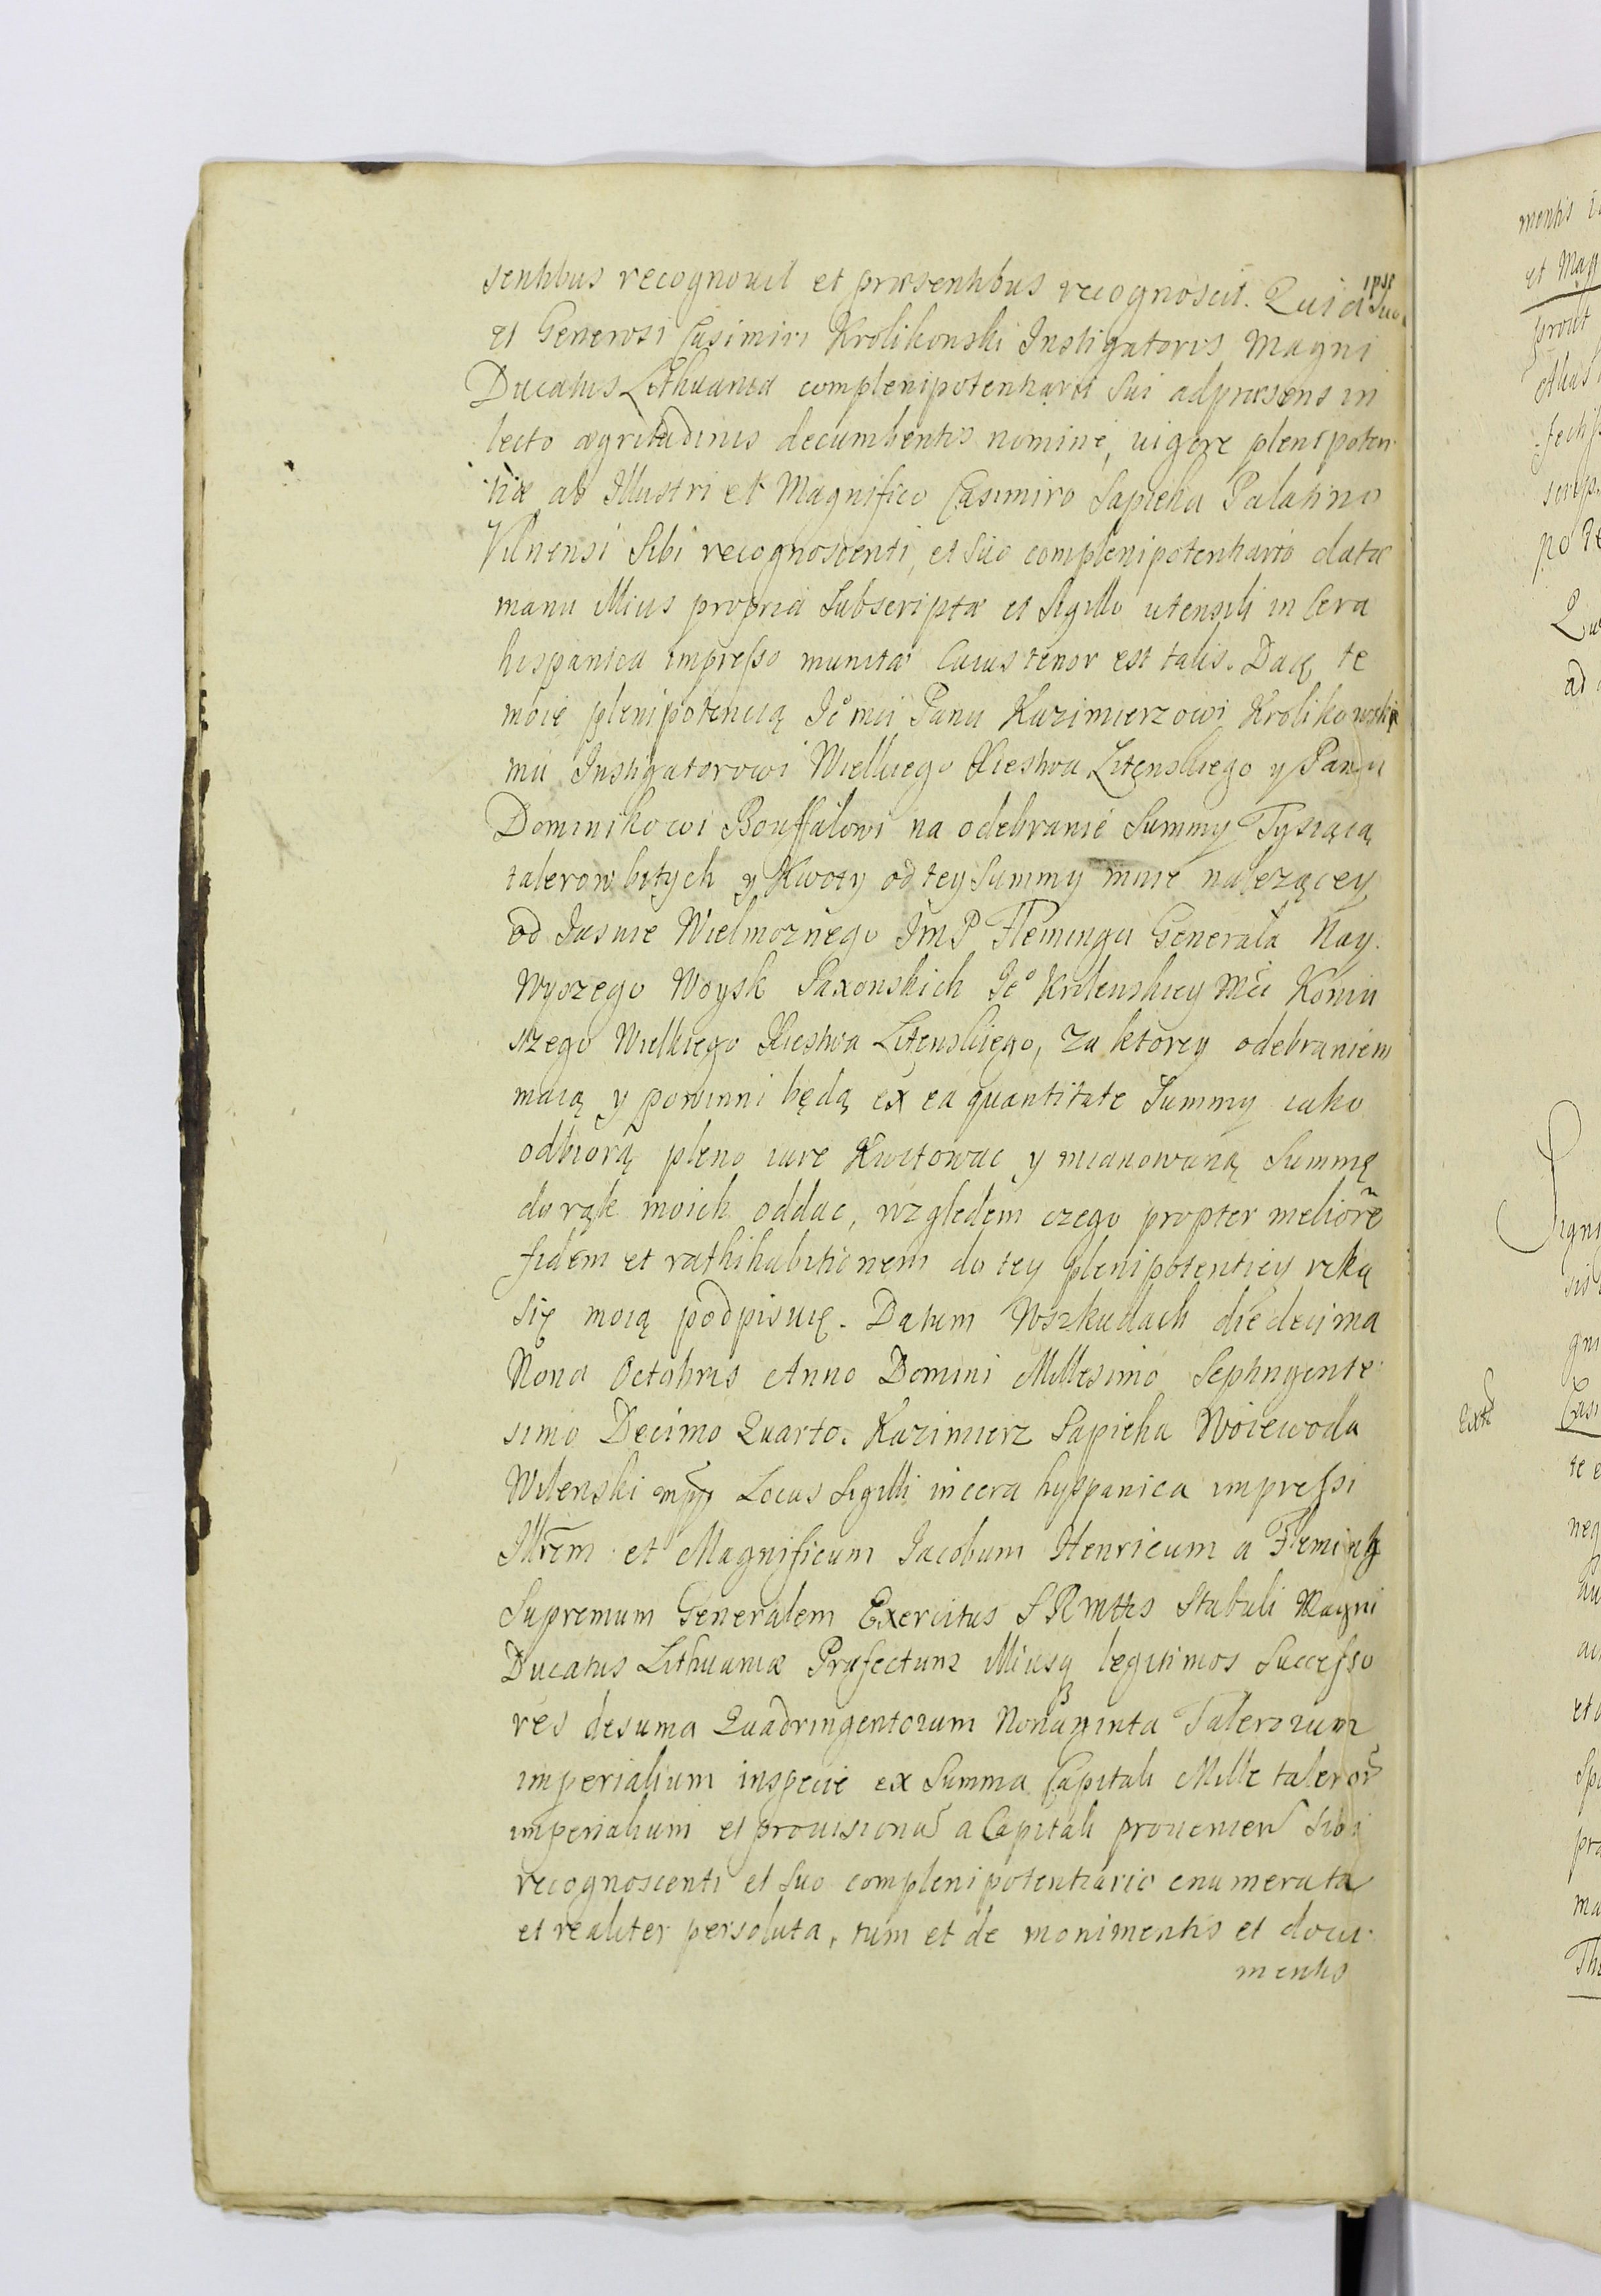 sentibus recognovit et præsentibus recognoscit. Quia ipse suo
et Generosi Casimiri Krolikowski Instigatoris Magni
Ducatus Lithuaniæ complenipotentiarii sui ad præsens in
lecto ægritudinis decumbentis nomine, uigore plenipoten
tiæ ab Illustri et Magnifico Casimiro Sapieha Palatino
Vilnensi Sibi recognoscenti, et suo complenipotentiario datæ
manu illius propria Subscriptæ et Sigillo utensili in Cera
hispanica impresso munitæ Cuius tenor est talis. Daię te
moię plenipotencią Je͠o mci Panu Kazimierzowi Krolikowskie
mu Instigatorowi Wielkiego Xiestwa Litewskiego y Panu
Dominikowi Bouffałowi na odebranie Summy Tysiąca
talerow bitych y Kwoty od tey Summy mnie należącey
od Iasnie Wielmożnego JmP Fleminga Generała Nay
wyższego Woysk Saxonskich Je͠o Krolewskiey Mci Koniu
szego Wielkiego Xiestwa Litewskiego, za ktorey odebraniem
maią y powinni będą ex ea quantitate Summy iako
odbiorą pleno iure Kwitowac y mianowaną Summę
do rąk moich oddac, względem czego propter meliore͠
fidem et rathihabitionem do tey plenipotentiey ręką
się moią podpisuię. Datum w Szkudach die decima
Nona Octobris Anno Domini Millesimo Septingente
simo Decimo Quarto. Kazimierz Sapieha Woiewoda
Wilenski mpp Locus Sigilli in cera hyspanica impressi
Illrem et Magnificum Jacobum Henricum a Fleming
Supremum Generalem Exercitus S R mttis Stabuli Magni
Ducatus Lithuaniæ Præfectum illiusq legitimos Successo
res de suma Quadringentorum Nonaginta Talerorum
imperialium in specie ex Summa Capitali Mille taleror͠
imperialium et provisione a Capitali prouenien Sibi
recognoscenti et suo complenipotentiario enumerata
et realiter persoluta, tum et de monimentis et docu
mentis